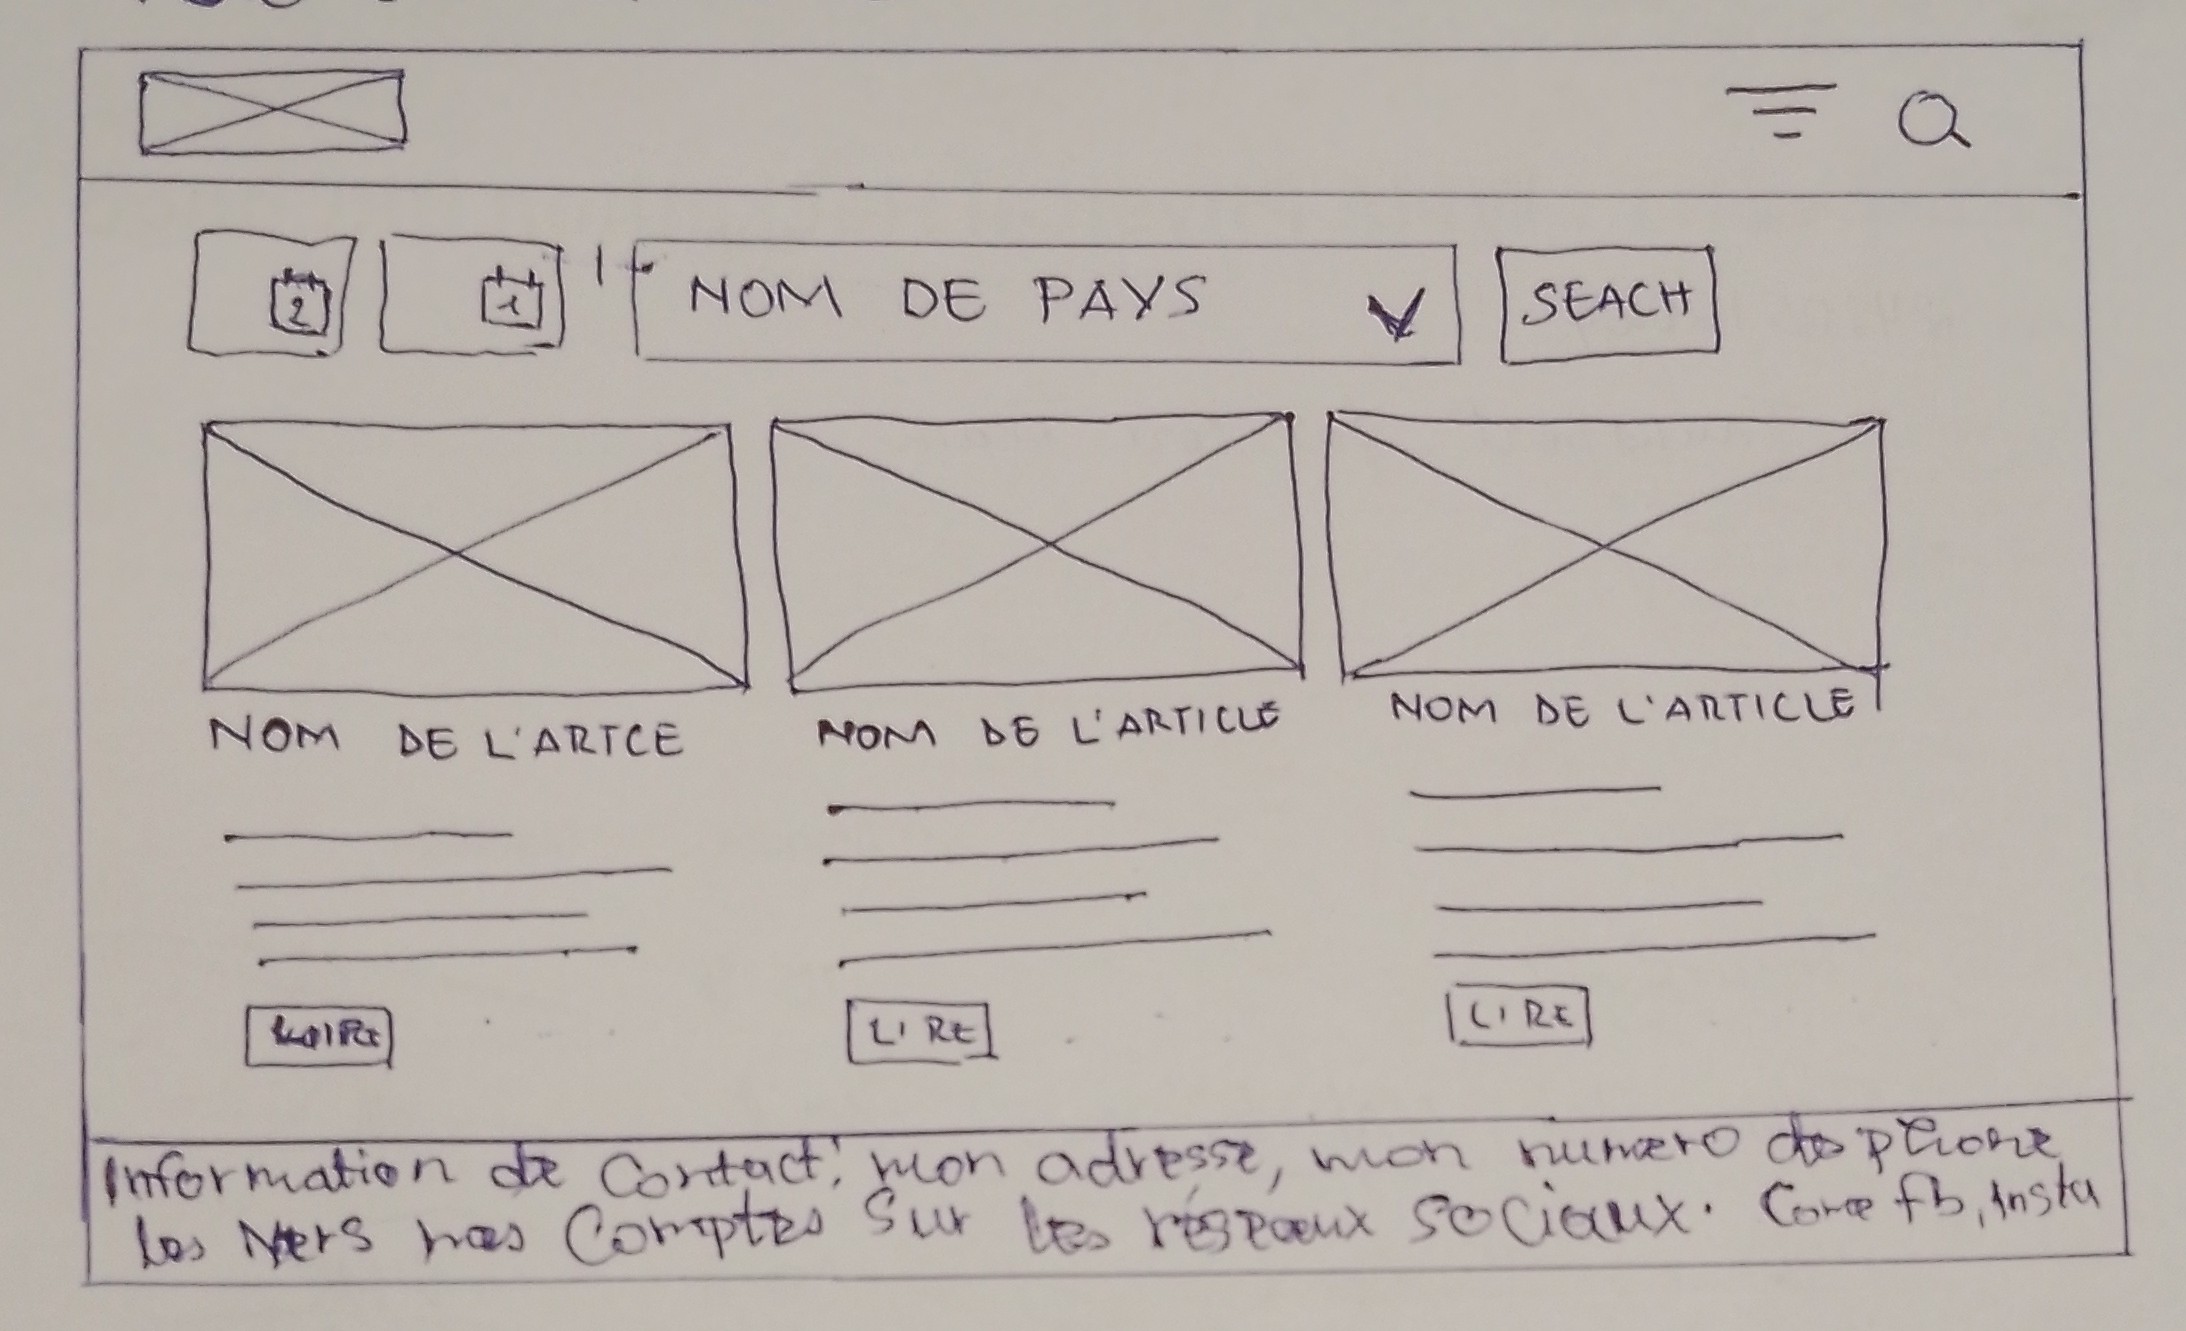 2 1 NOM DE PAYS SEACH
NOM DE L'ARTCE NOM DE L'ARTICLE NOM DE L'ARTICLE
LIRE LIRE
Information de Contact: mon adresse, mon numero de phone
les liens mes Comptes Sur les réseaux sociaux. Come fb, Insta